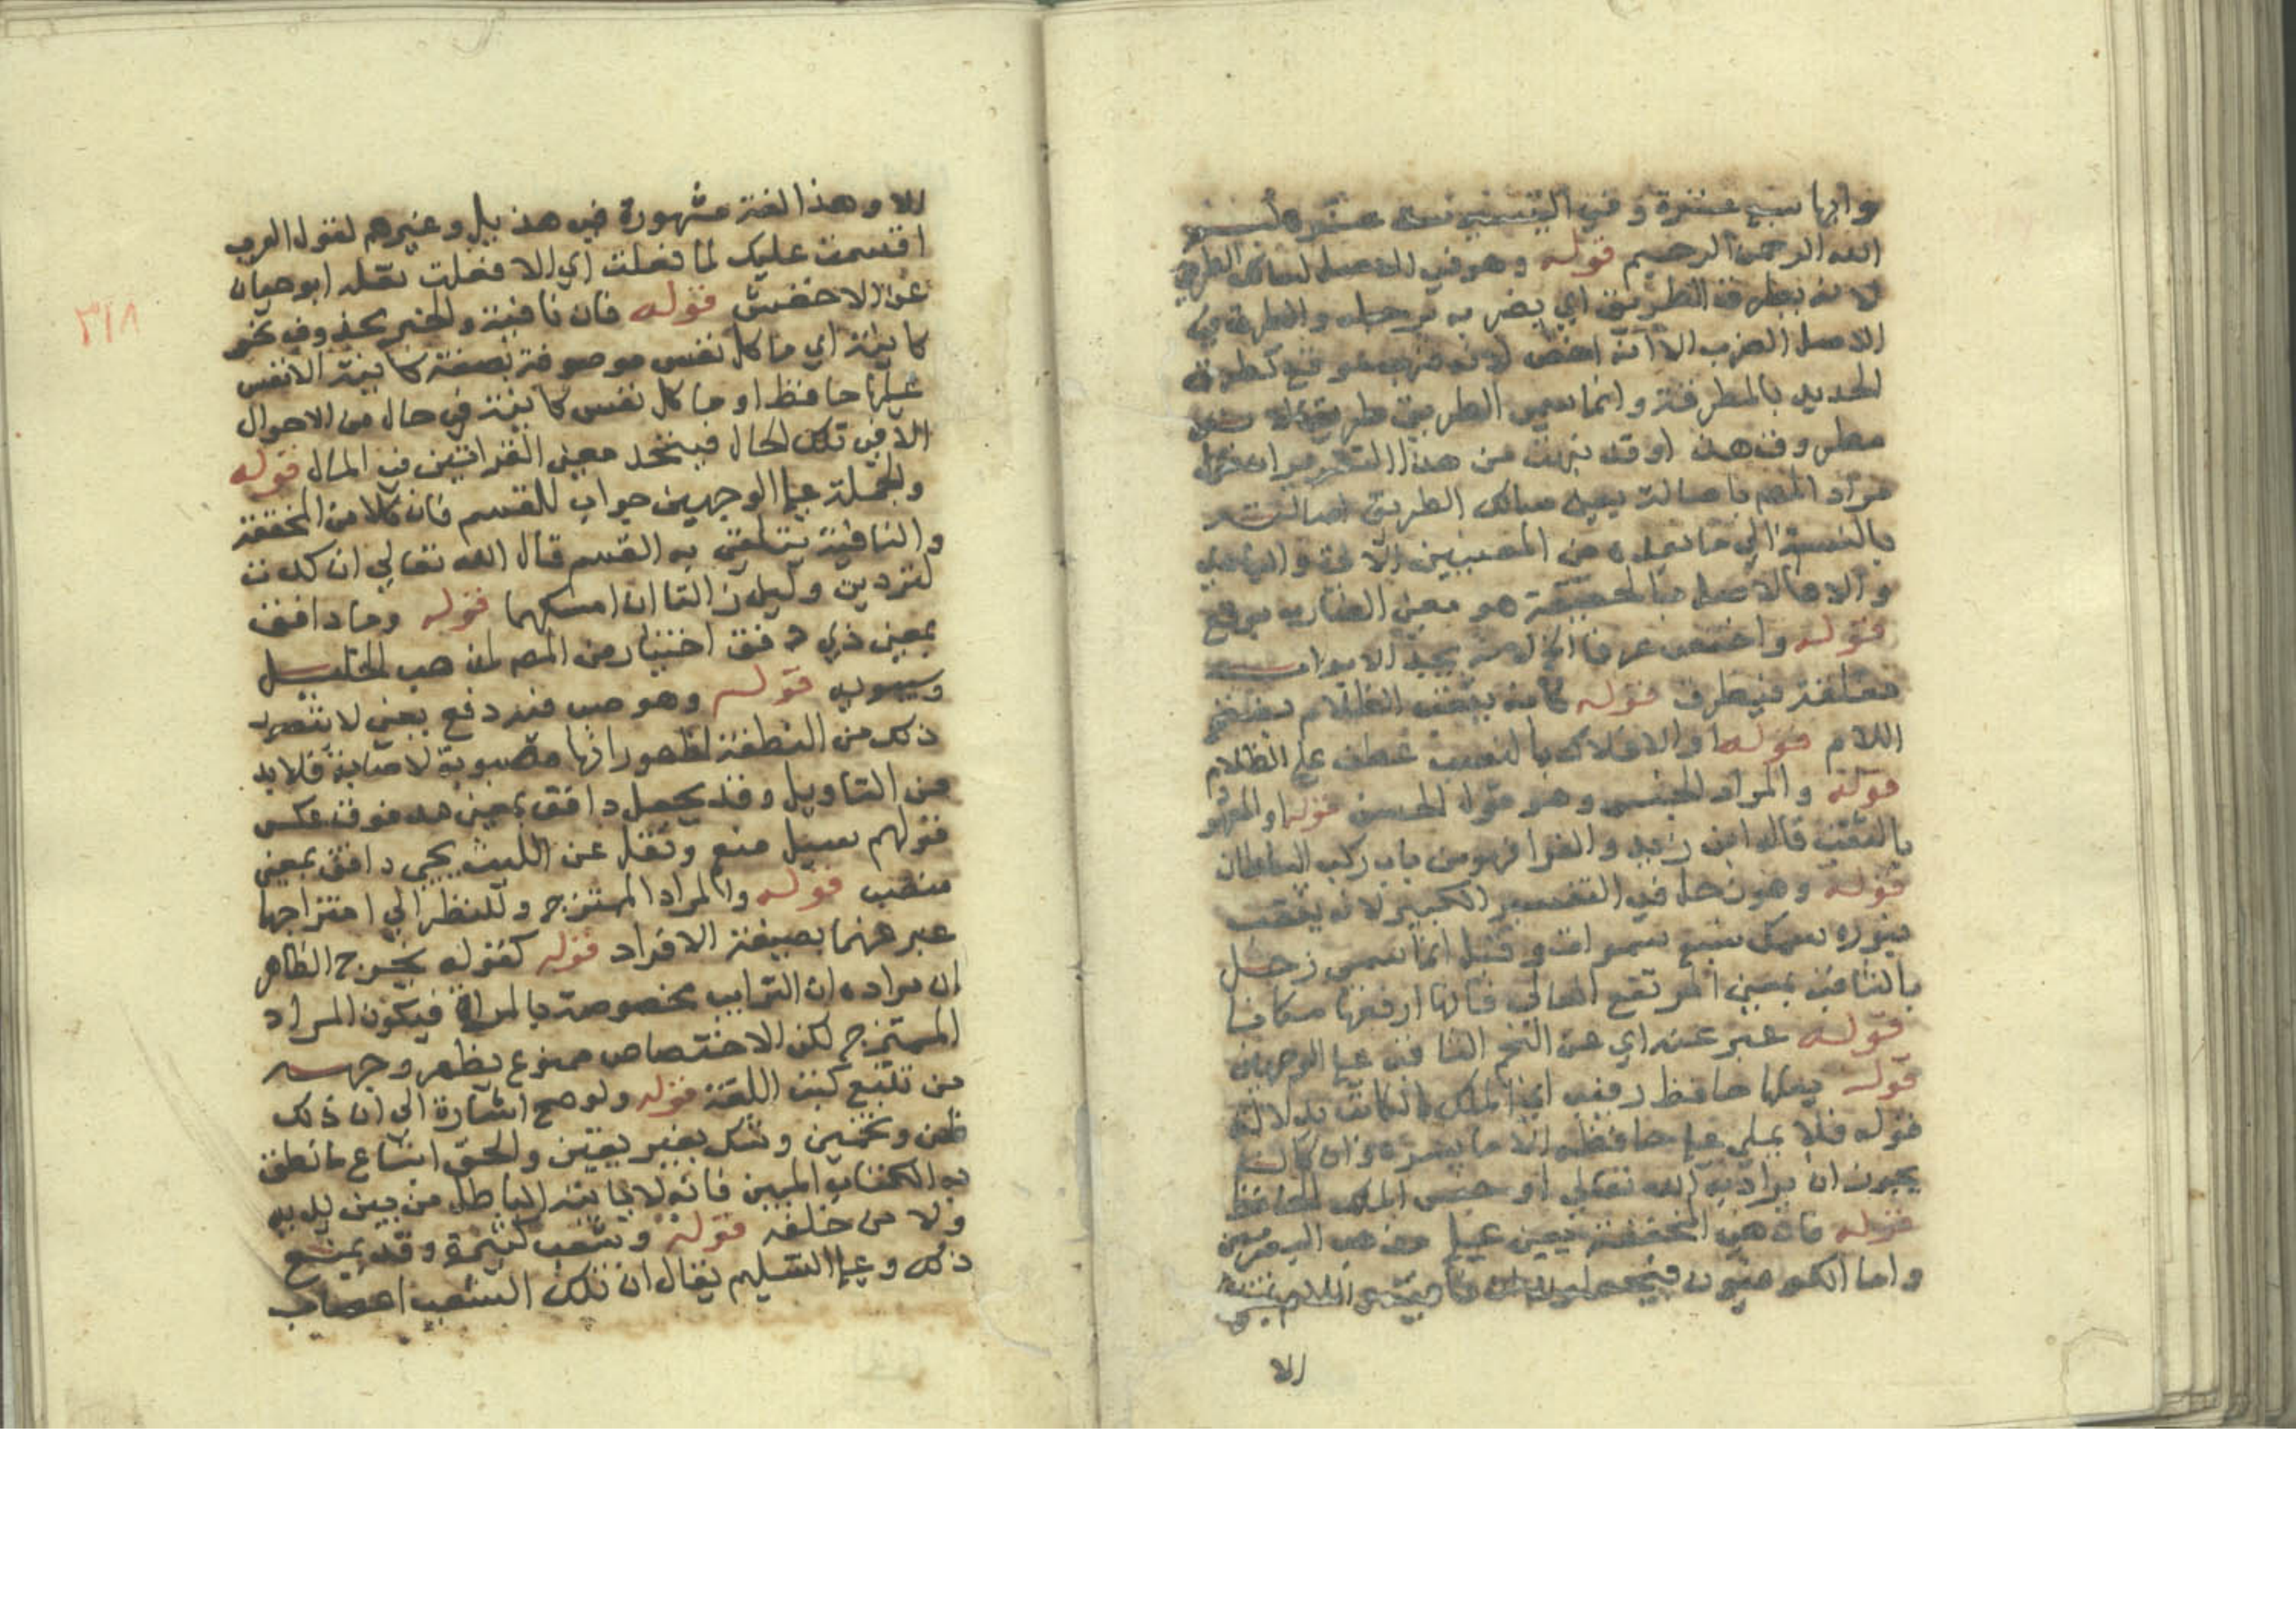 وايها سبع عشرة وفي التيسير ست عشر بسم
الله الرحمن الرحيم قوله وهو في الاصل لسالك الطريق
لانه يطرق الطريق اي يضربه برجله والطرق في
الاصل الضرب الا انه اخص لانه ضرب توقع كطرق
الحديد بالمطرقة وانما سمي الطريق طريقا لانه
مطروق هذا وقد تبين من هذا التقرير ان
مراد المص باصالة معنى سالك الطريق اصالته
بالنسبة الى ما يليه من المعنيين
والا فالاصل بالحقيقة هو معنى الضارب بوقع
قوله واختص عرفا اي لانه يجد الابواب
مغلقة فيطرق قوله كانه يثقب الظلام بفتح
اللام قوله او الافلاك بالنصب عطف على الظلام
قوله والمراد الجنس وهو قول الحسن قوله او المعهود
بالثقب قاله ابن زيد والفرا فهو من باب ركب السلطان
قوله وهو زحل في التفسير الكبير لانه يثقب
بنوره سمك سبع سموات وقيل انما سمي زحل
بالثاقب بمعنى المرتفع العالي فانها ارفعها مكانا
قوله عبر عنه اي عن النجم الثاقب على الوجهين
قوله عليها حافظ رقيب اي الملك الكاتب بدلالة
قوله فلا يملي على حافظه الا ما يسره وان كان
يجوز ان يراد به الله تعالى او جنس الملك الحافظ
قوله فان هي المخففة يعني على مذهب البصريين
واما الكوفيون فيجعلون ان نافية واللام بمعنى
الا
الا وهذا لغة مشهورة في هذيل وغيرهم لقول العرب
اقسمت عليك لما فعلت اي الا فعلت نقله ابو حيان
عن الاخفش قوله فان نافية والخبر محذوف نحو
كاينة اي ما كل نفس موصوفة بصفة كاينة الانفس
عليها حافظ او ما كل نفس كاينة في حال من الاحوال
الا في تلك الحال فيتحد معنى القرائتين في المال قوله
والجملة على الوجهين جواب للقسم فان كلا من المخففة
والنافية يتلقى به القسم قال الله تعالى ان كدت
لتردين وليئن زالتا ان امسكهما قوله وماء دافق
بمعنى ذي دفق اختيار من المص لمذهب الخليل
وسيبويه قوله وهو صب فيه دفع يعني لا يتصور
ذلك من النطفة لظهور انها مصبوبة لا صابة فلا بد
من التاويل وقد يجعل دافق بمعنى مدفوق عكس
قولهم سيل مفعم ونقل عن الليث يجي دافق بمعنى
منصب قوله والمراد الممتزج وللنظر الى امتزاجها
عبر عنهما بصيغة الافراد قوله كقوله يخرج الظاهر
ان مراده ان الترايب مخصوصة بالمراة فيكون المراد
الممتزج لكن الاختصاص ممنوع يظهر وجهه
من تتبع كتب اللغة قوله ولو صح اشارة الى ان ذلك
ظن وتخمين وشك بغير يقين والحق اتباع ما نطق
به الكتاب المبين فانه لا ياتيه الباطل من بين يديه
ولا من خلفه قوله وشعب كثيرة وقد يمنع
ذلك وعلى التسليم يقال ان تلك الشعب اعصاب
٣١٨